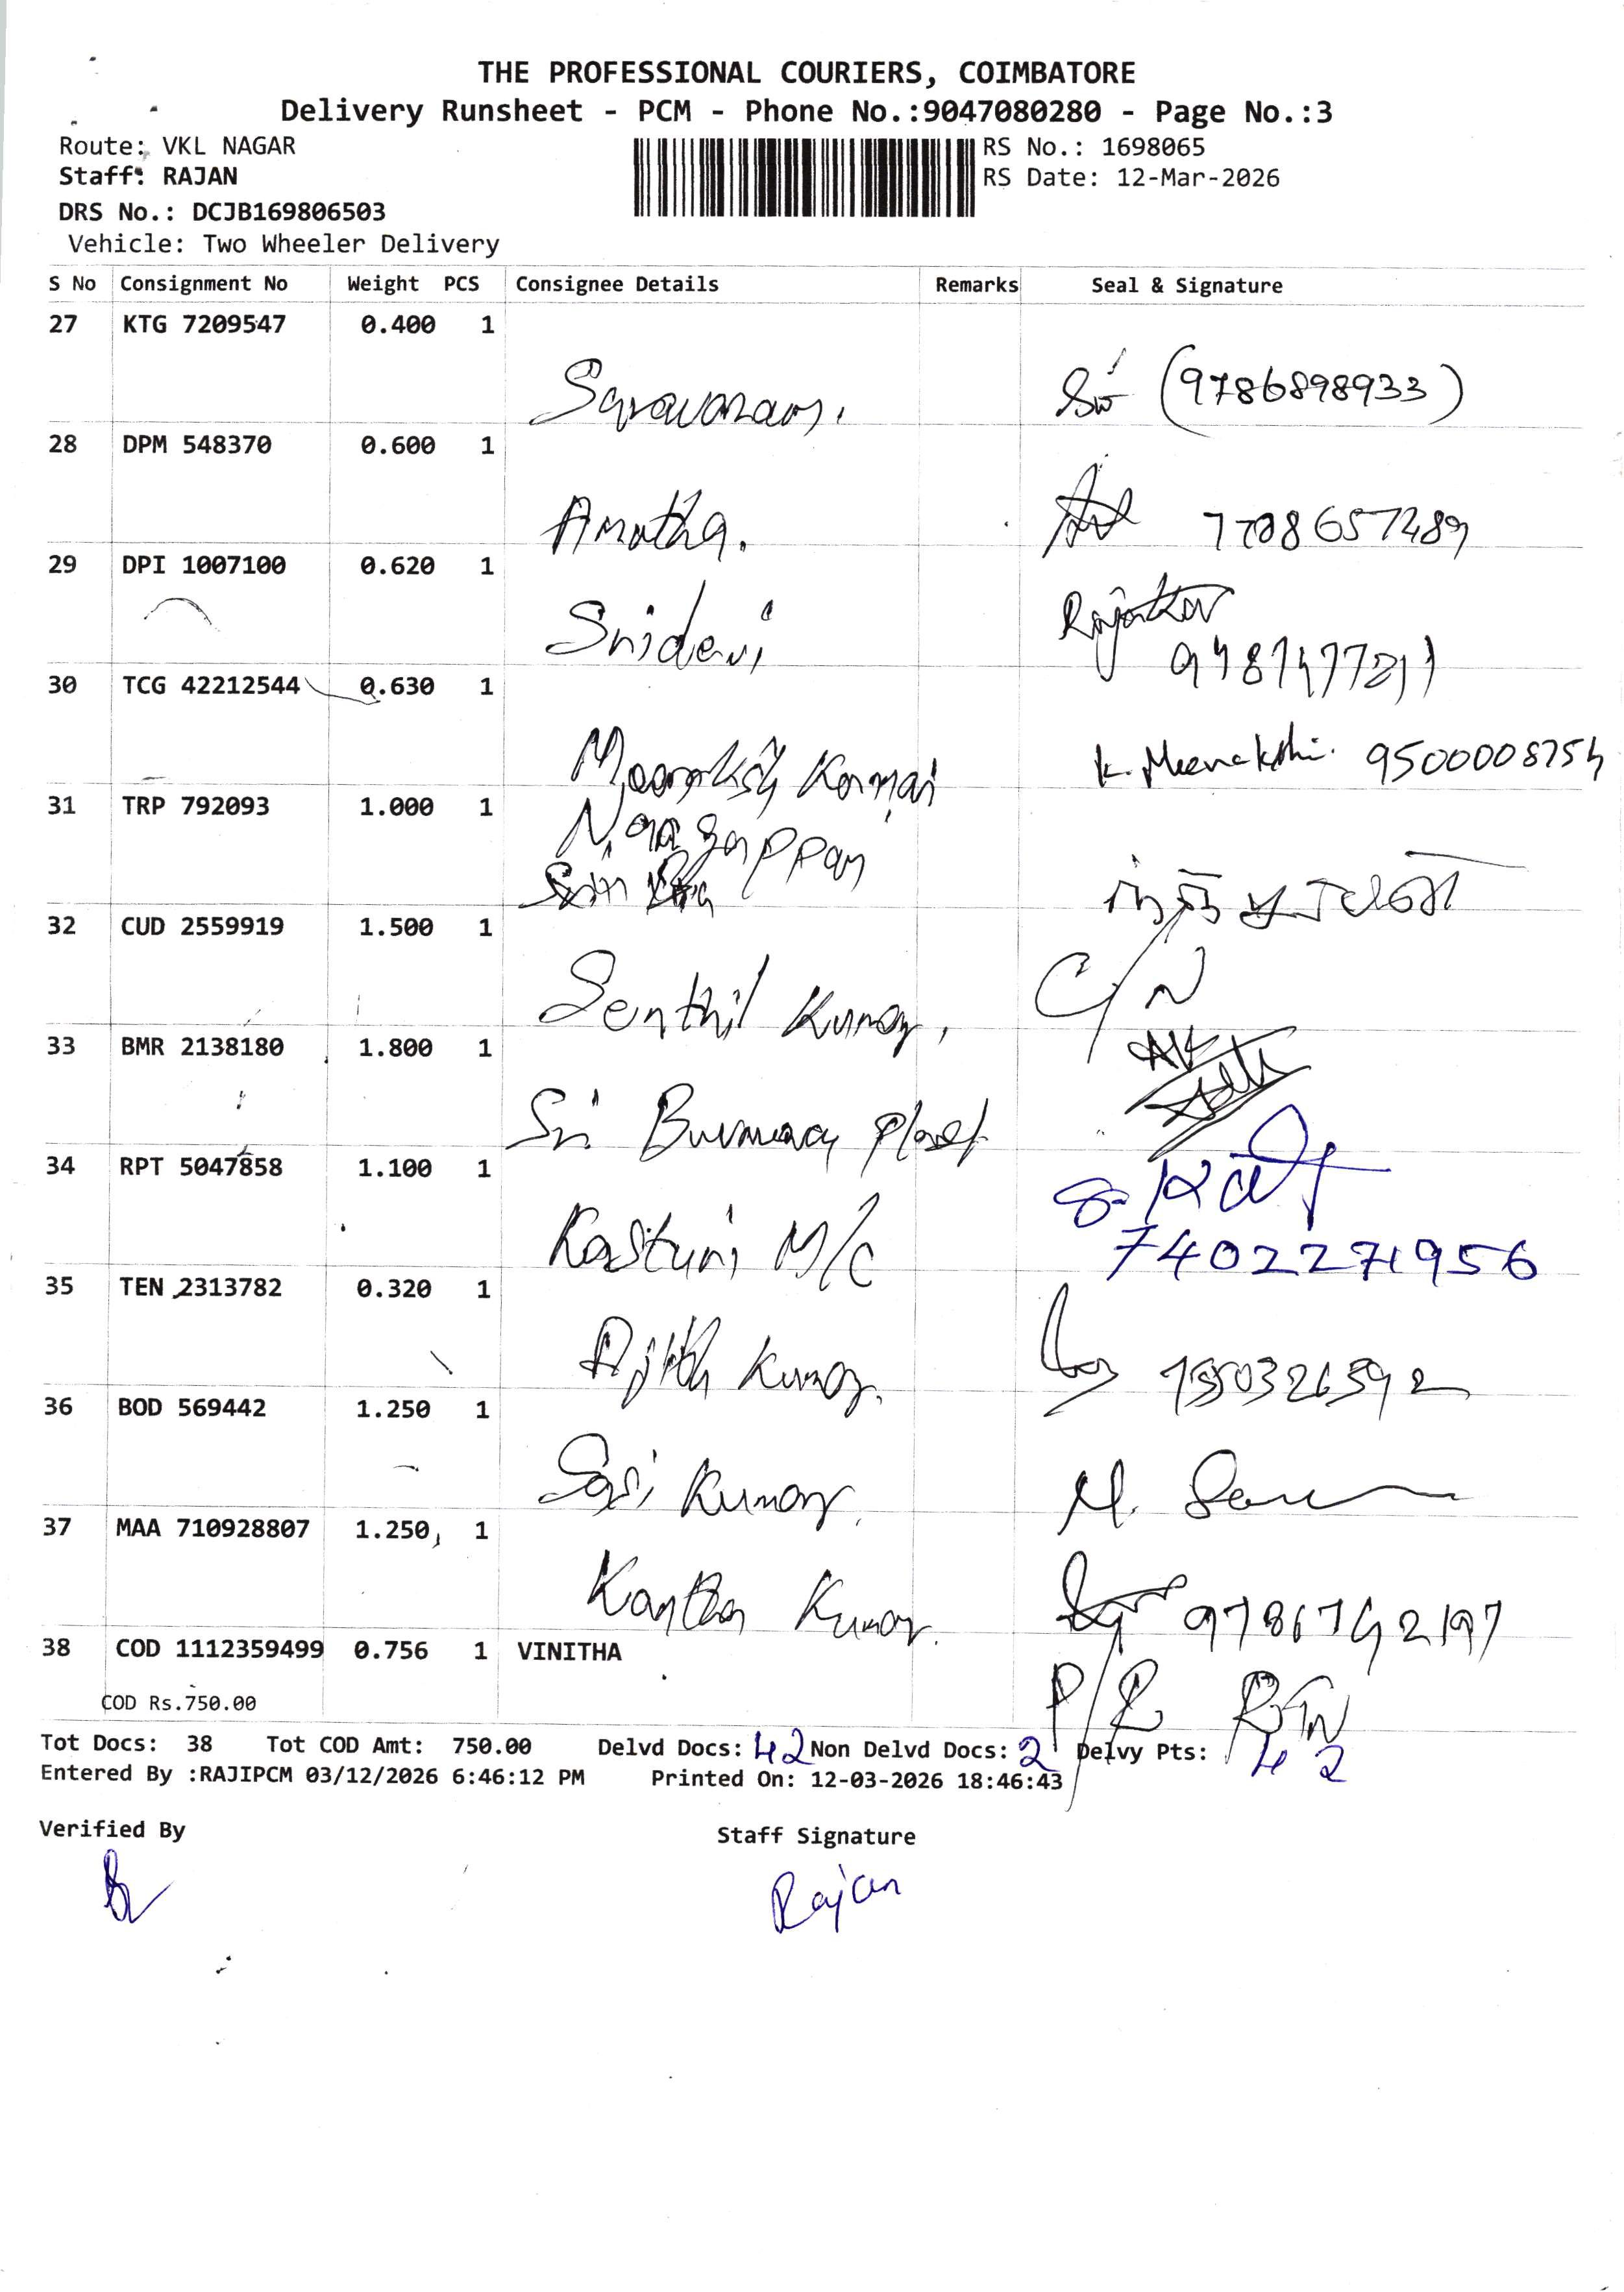 THE PROFESSIONAL COURIERS, COIMBATORE
Delivery Runsheet - PCM - Phone No.:9047080280 - Page No.:3
Route: VKL NAGAR
RS No.: 1698065
Staff: RAJAN
RS Date: 12-Mar-2026
DRS No.: DCJB169806503
Vehicle: Two Wheeler Delivery
S No Consignment No Weight PCS Consignee Details Remarks Seal & Signature
27 KTG 7209547 0.400 1
Saravanan. (9786898933)
28 DPM 548370 0.600 1
Amutha. 7708657489
29 DPI 1007100 0.620 1
Sridevi
30 TCG 42212544 0.630 1
K. Meenakshi. 9500008754
31 TRP 792093 1.000 1
Nagappan
32 CUD 2559919 1.500 1
Senthil Kumar, C/N
33 BMR 2138180 1.800 1
Sri
34 RPT 5047858 1.100 1
Kasturi M/C
7402271956
35 TEN 2313782 0.320 1
Ajith Kumar.
36 BOD 569442 1.250 1
Sasi Kumar. M.
37 MAA 710928807 1.250 1
Kumar. 9786742197
38 COD 1112359499 0.756 1 VINITHA
COD Rs.750.00
Tot Docs: 38 Tot COD Amt: 750.00 Delvd Docs: 42 Non Delvd Docs: 2 Delvy Pts: 42
Entered By :RAJIPCM 03/12/2026 6:46:12 PM Printed On: 12-03-2026 18:46:43
Verified By Staff Signature
Rajan